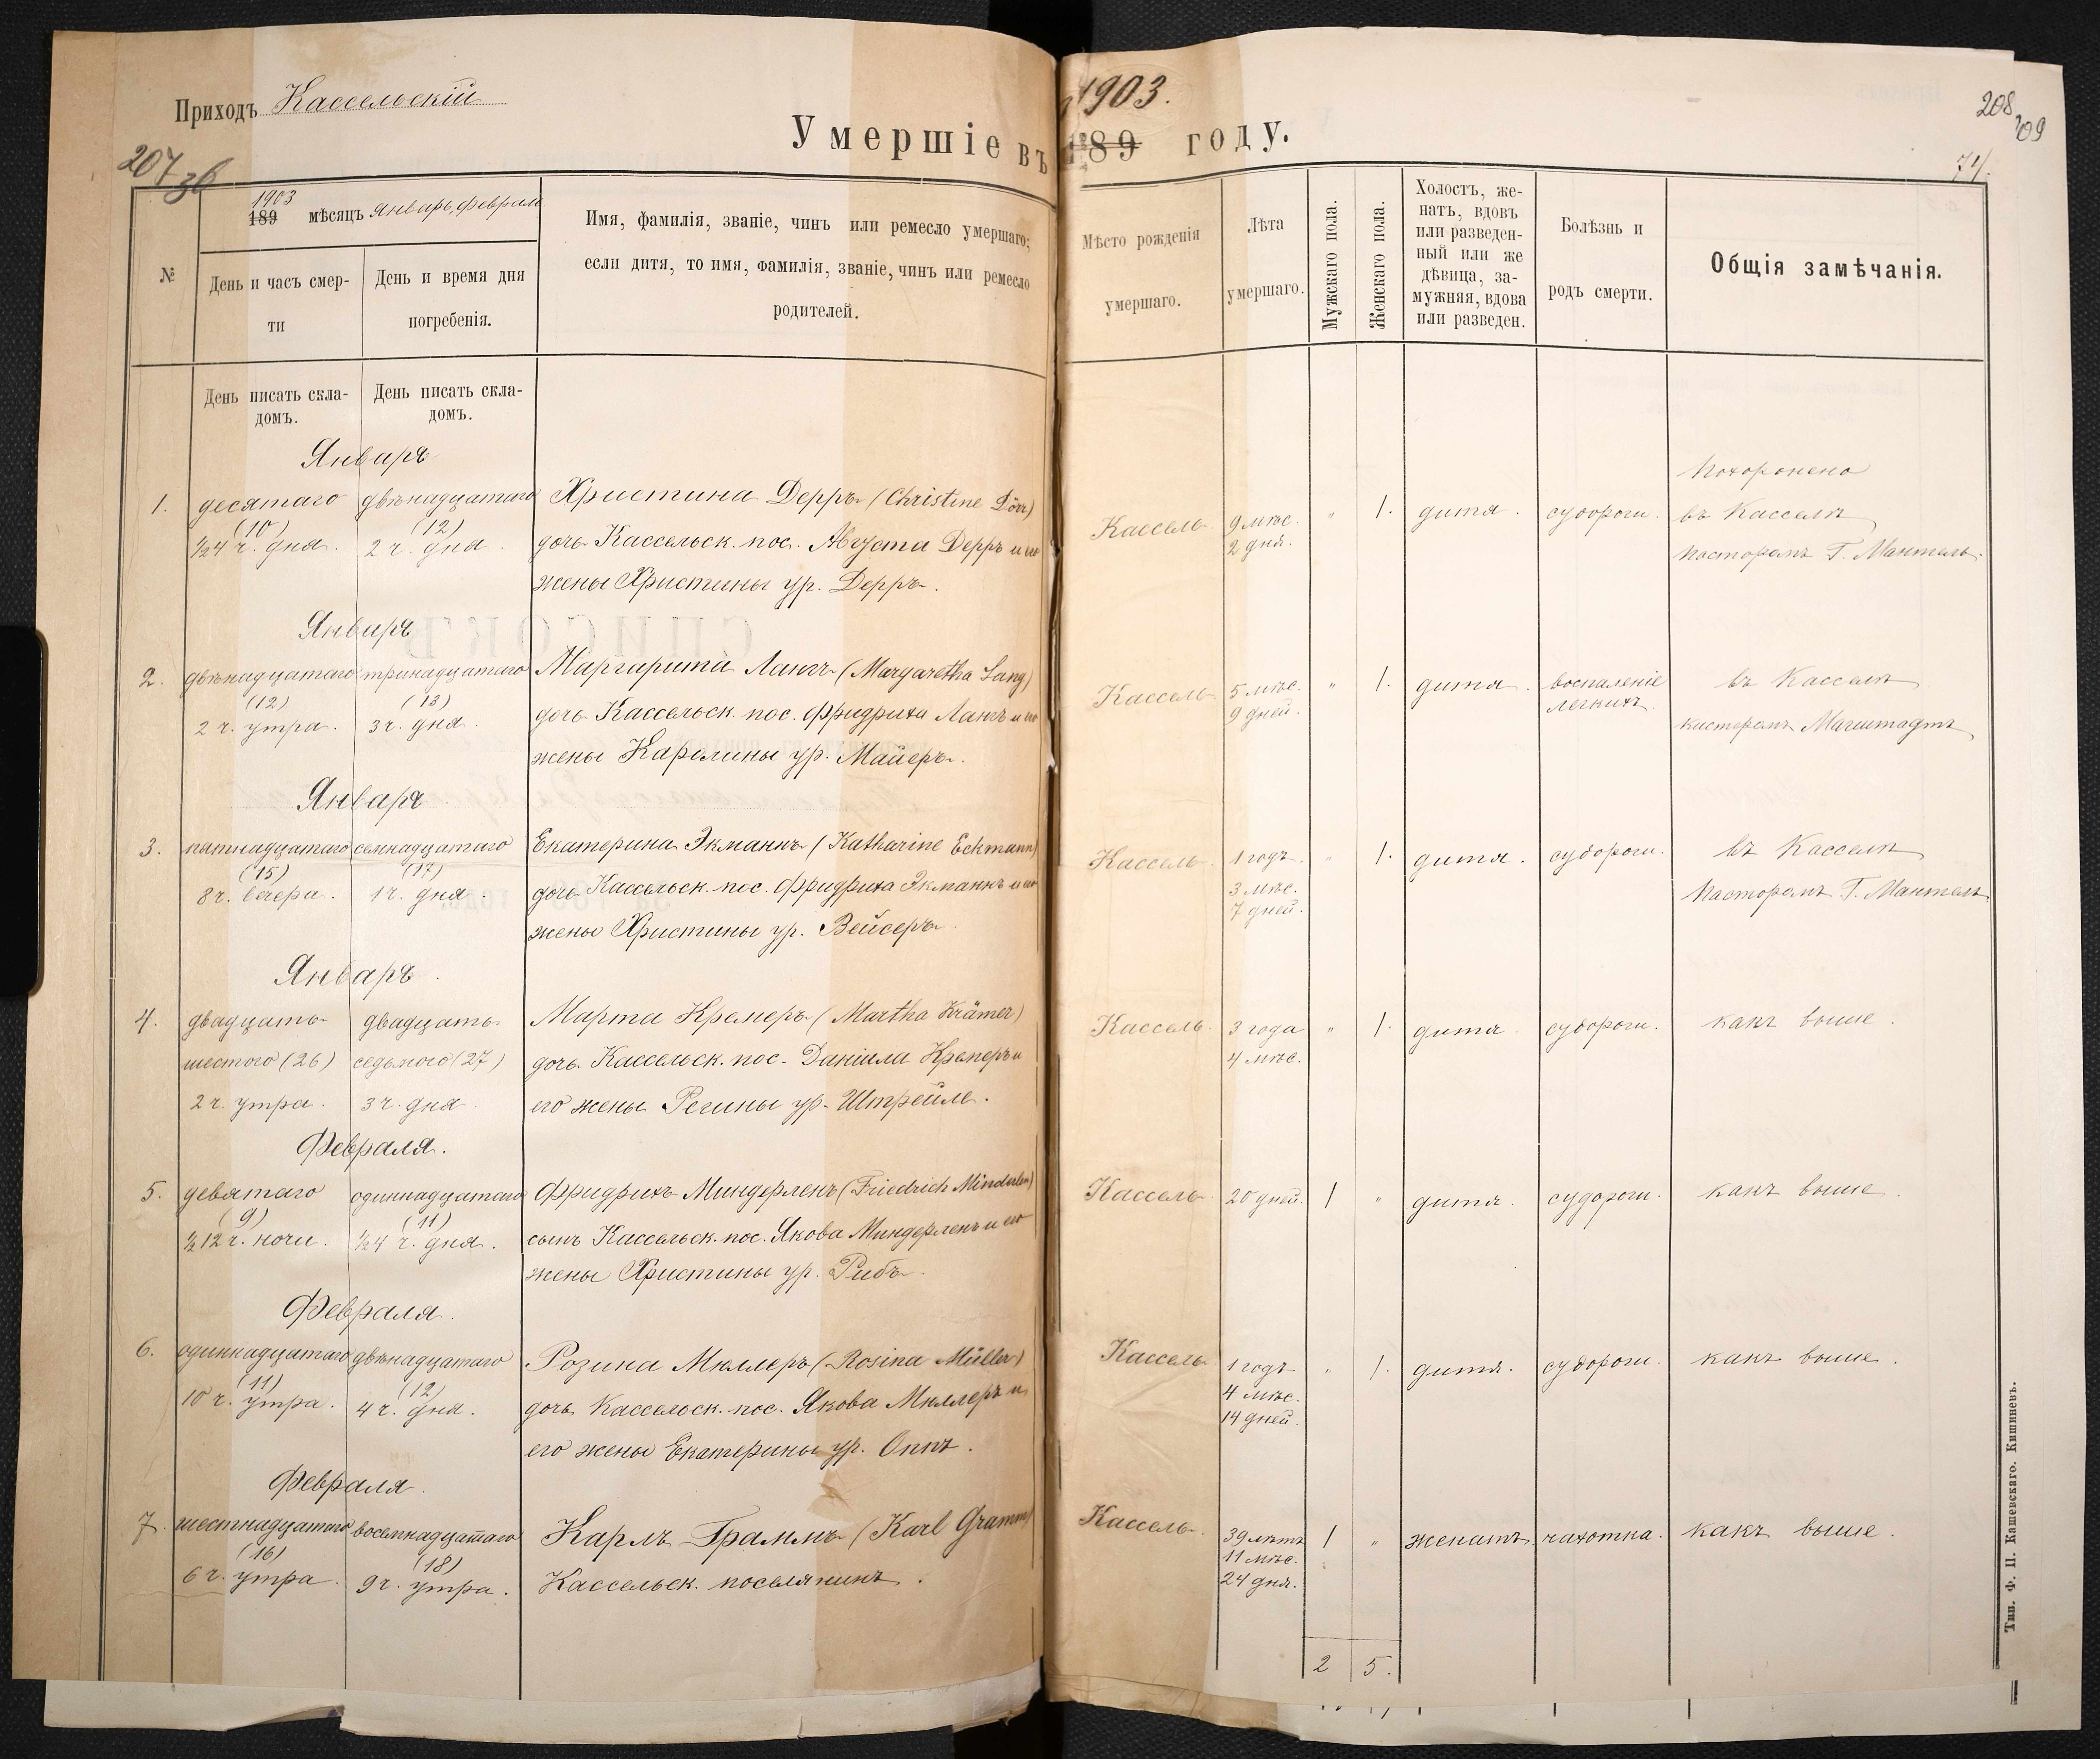 Приходъ Кассельскій
1903.
208
209
Умершіе въ 189 году.
207 об
74.
№
1903
189 мѣсяцъ Январь, Феврал.
День и часъ смер-
ти
День и время дня
погребенія.
Имя, фамилія, званіе, чинъ или ремесло умершаго;
если дитя, то имя, фамилія, званіе, чинъ или ремесло
родителей.
Мѣсто рожденія
умершаго.
Лѣта
умершаго.
Мужскаго пола.
Женскаго пола.
Холостъ, же-
натъ, вдовъ
или разведен-
ный или же
дѣвица, за-
мужняя, вдова
или разведен.
Болѣзнь и
родъ смерти.
Общія замѣчанія.
День писать скла-
домъ.
День писать скла-
домъ.
Январь
1. десятаго двѣнадцатаго Христина Дерръ (Christine Dörr) Кассель 9 мѣс. " 1. дитя. судороги. Похоронено
(10) (12) 2 дня. въ Касселѣ
½4 ч. дня. 2 ч. дня. дочь Кассельск. пос. Августа Дерръ и его пасторомъ Г. Мантель.
жены Христины ур. Дерръ.
Январь
2. двѣнадцатаго тринадцатаго Маргарита Лангъ (Margaretha Lang) Кассель 5 мѣс. " 1. дитя. воспаленіе въ Касселѣ
(12) (13) 9 дней. легкихъ.
2 ч. утра. 3 ч. дня. дочь Кассельск. пос. Фридриха Лангъ и его кистеромъ
жены Каролины ур. Майеръ.
Январь
3. пятнадцатаго семнадцатаго Екатерина Экманнъ (Katharine Eckmann) Кассель 1 годъ " 1. дитя. судороги. въ Касселѣ
(15) (17) 3 мѣс.
8 ч. вечера. 1 ч. дня. дочь Кассельск. пос. Фридриха Экманнъ и его 7 дней. пасторомъ Г. Мантель
жены Христины ур. Вейсеръ.
Январь
4. двадцать двадцать Марта Кремеръ (Martha Krämer) Кассель 3 года " 1. дитя. судороги. какъ выше.
шестого (26) седьмого (27) дочь Кассельск. пос. Даніила Кремеръ и 4 мѣс.
2 ч. утра. 3 ч. дня его жены Регины ур. Штрейле.
Февраля.
5. девятаго одиннадцатаго Фридрихъ Миндерленъ (Friedrich Minderlen) Кассель 20 дней. 1 " дитя. судороги. какъ выше.
(9) (11)
½12 ч. ночи. ½4 ч. дня. сынъ Кассельск. пос. Якова Миндерленъ и его
жены Христины ур. Рибъ.
Февраля.
6. одиннадцатаго двѣнадцатаго Розина Миллеръ (Rosina Müller) Кассель 1 годъ " 1. дитя. судороги. какъ выше.
(11) (12) 4 мѣс.
10 ч. утра. 4 ч. дня. дочь Кассельск. пос. Якова Миллеръ и 14 дней.
его жены Екатерины ур. Оппъ.
Февраля.
7. шестнадцатаго восемнадцатаго Карлъ Граммъ (Karl Gramm) Кассель. 39 лѣтъ 1 " женатъ. чахотка. какъ выше.
(16) (18) 11 мѣс.
6 ч. утра. 9 ч. утра. Кассельск. поселянинъ. 24 дня.
2 5.
Тип. Ф. П. Кашевскаго. Кишиневъ.